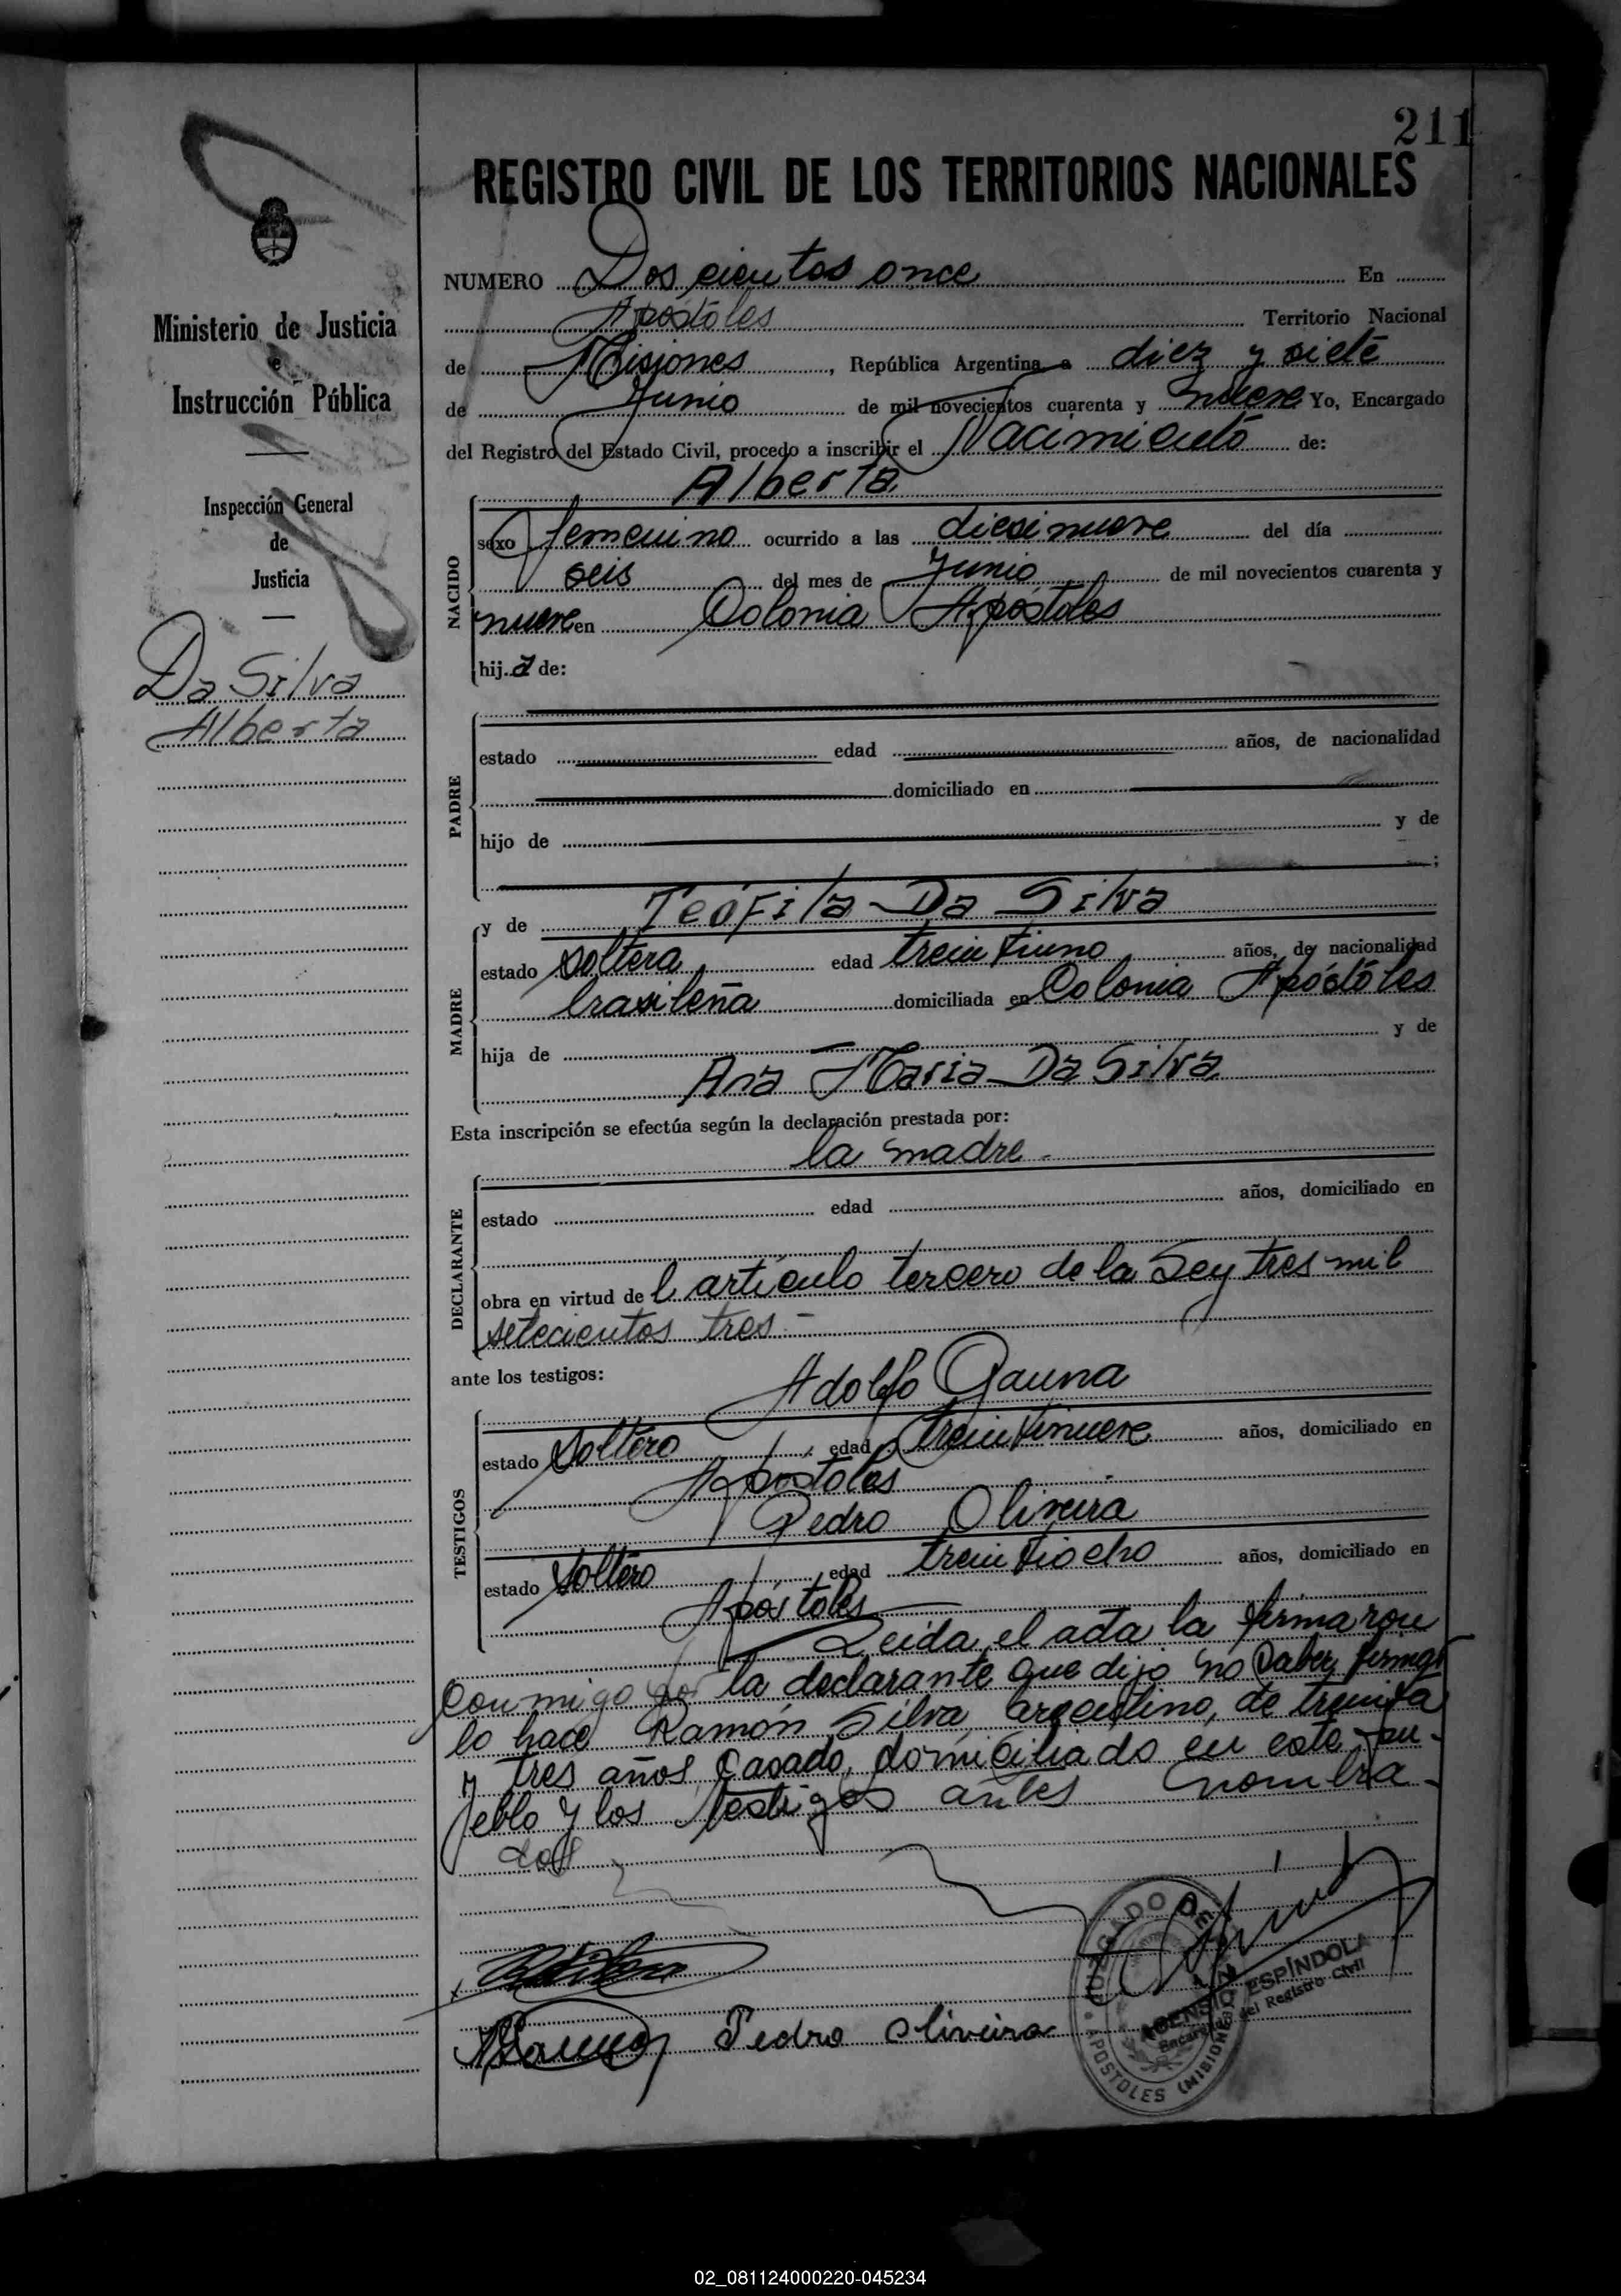 211
REGISTRO CIVIL DE LOS TERRITORIOS NACIONALES
Ministerio de Justicia
e
Instrucción Pública
Inspección General
de
Justicia
Da Silva
Alberta
NUMERO Doscientos once En
Apóstoles Territorio Nacional
de Misiones, República Argentina a diez y siete
de Junio de mil novecientos cuarenta y nueve Yo, Encargado
del Registro del Estado Civil, procedo a inscribir el Nacimiento de:
Alberta
NACIDO
sexo femenino ocurrido a las diesinueve del día
seis del mes de Junio de mil novecientos cuarenta y
nueve en Colonia Apóstoles
hija de:
PADRE
estado edad años, de nacionalidad
domiciliado en
hijo de y de
;
MADRE
y de Teófila Da Silva
estado soltera edad treintiuno años, de nacionalidad
brasileña domiciliada en Colonia Apóstoles
hija de y de
Ana Maria Da Silva
Esta inscripción se efectúa según la declaración prestada por:
la madre.
DECLARANTE
estado edad años, domiciliado en
obra en virtud del artículo tercero de la Ley tres mil
setecientos tres -
ante los testigos:
TESTIGOS
Adolfo Gauna
estado soltero edad treintinueve años, domiciliado en
Apostoles
Pedro Oliveira
estado soltero edad treintiocho años, domiciliado en
Apóstoles
Leida el acta la firmaron
conmigo por la declarante que dijo no saber firmar
lo hace Ramón Silva, argentino, de treinta
y tres años, casado, domiciliado en este pu-
eblo y los testigos antes nombra-
dos
Pedro Oliveira
JUZGADO DE
APOSTOLES (MISIONES)
ASENSIO ESPÍNDOLA
Encargado del Registro Civil
02_081124000220-045234